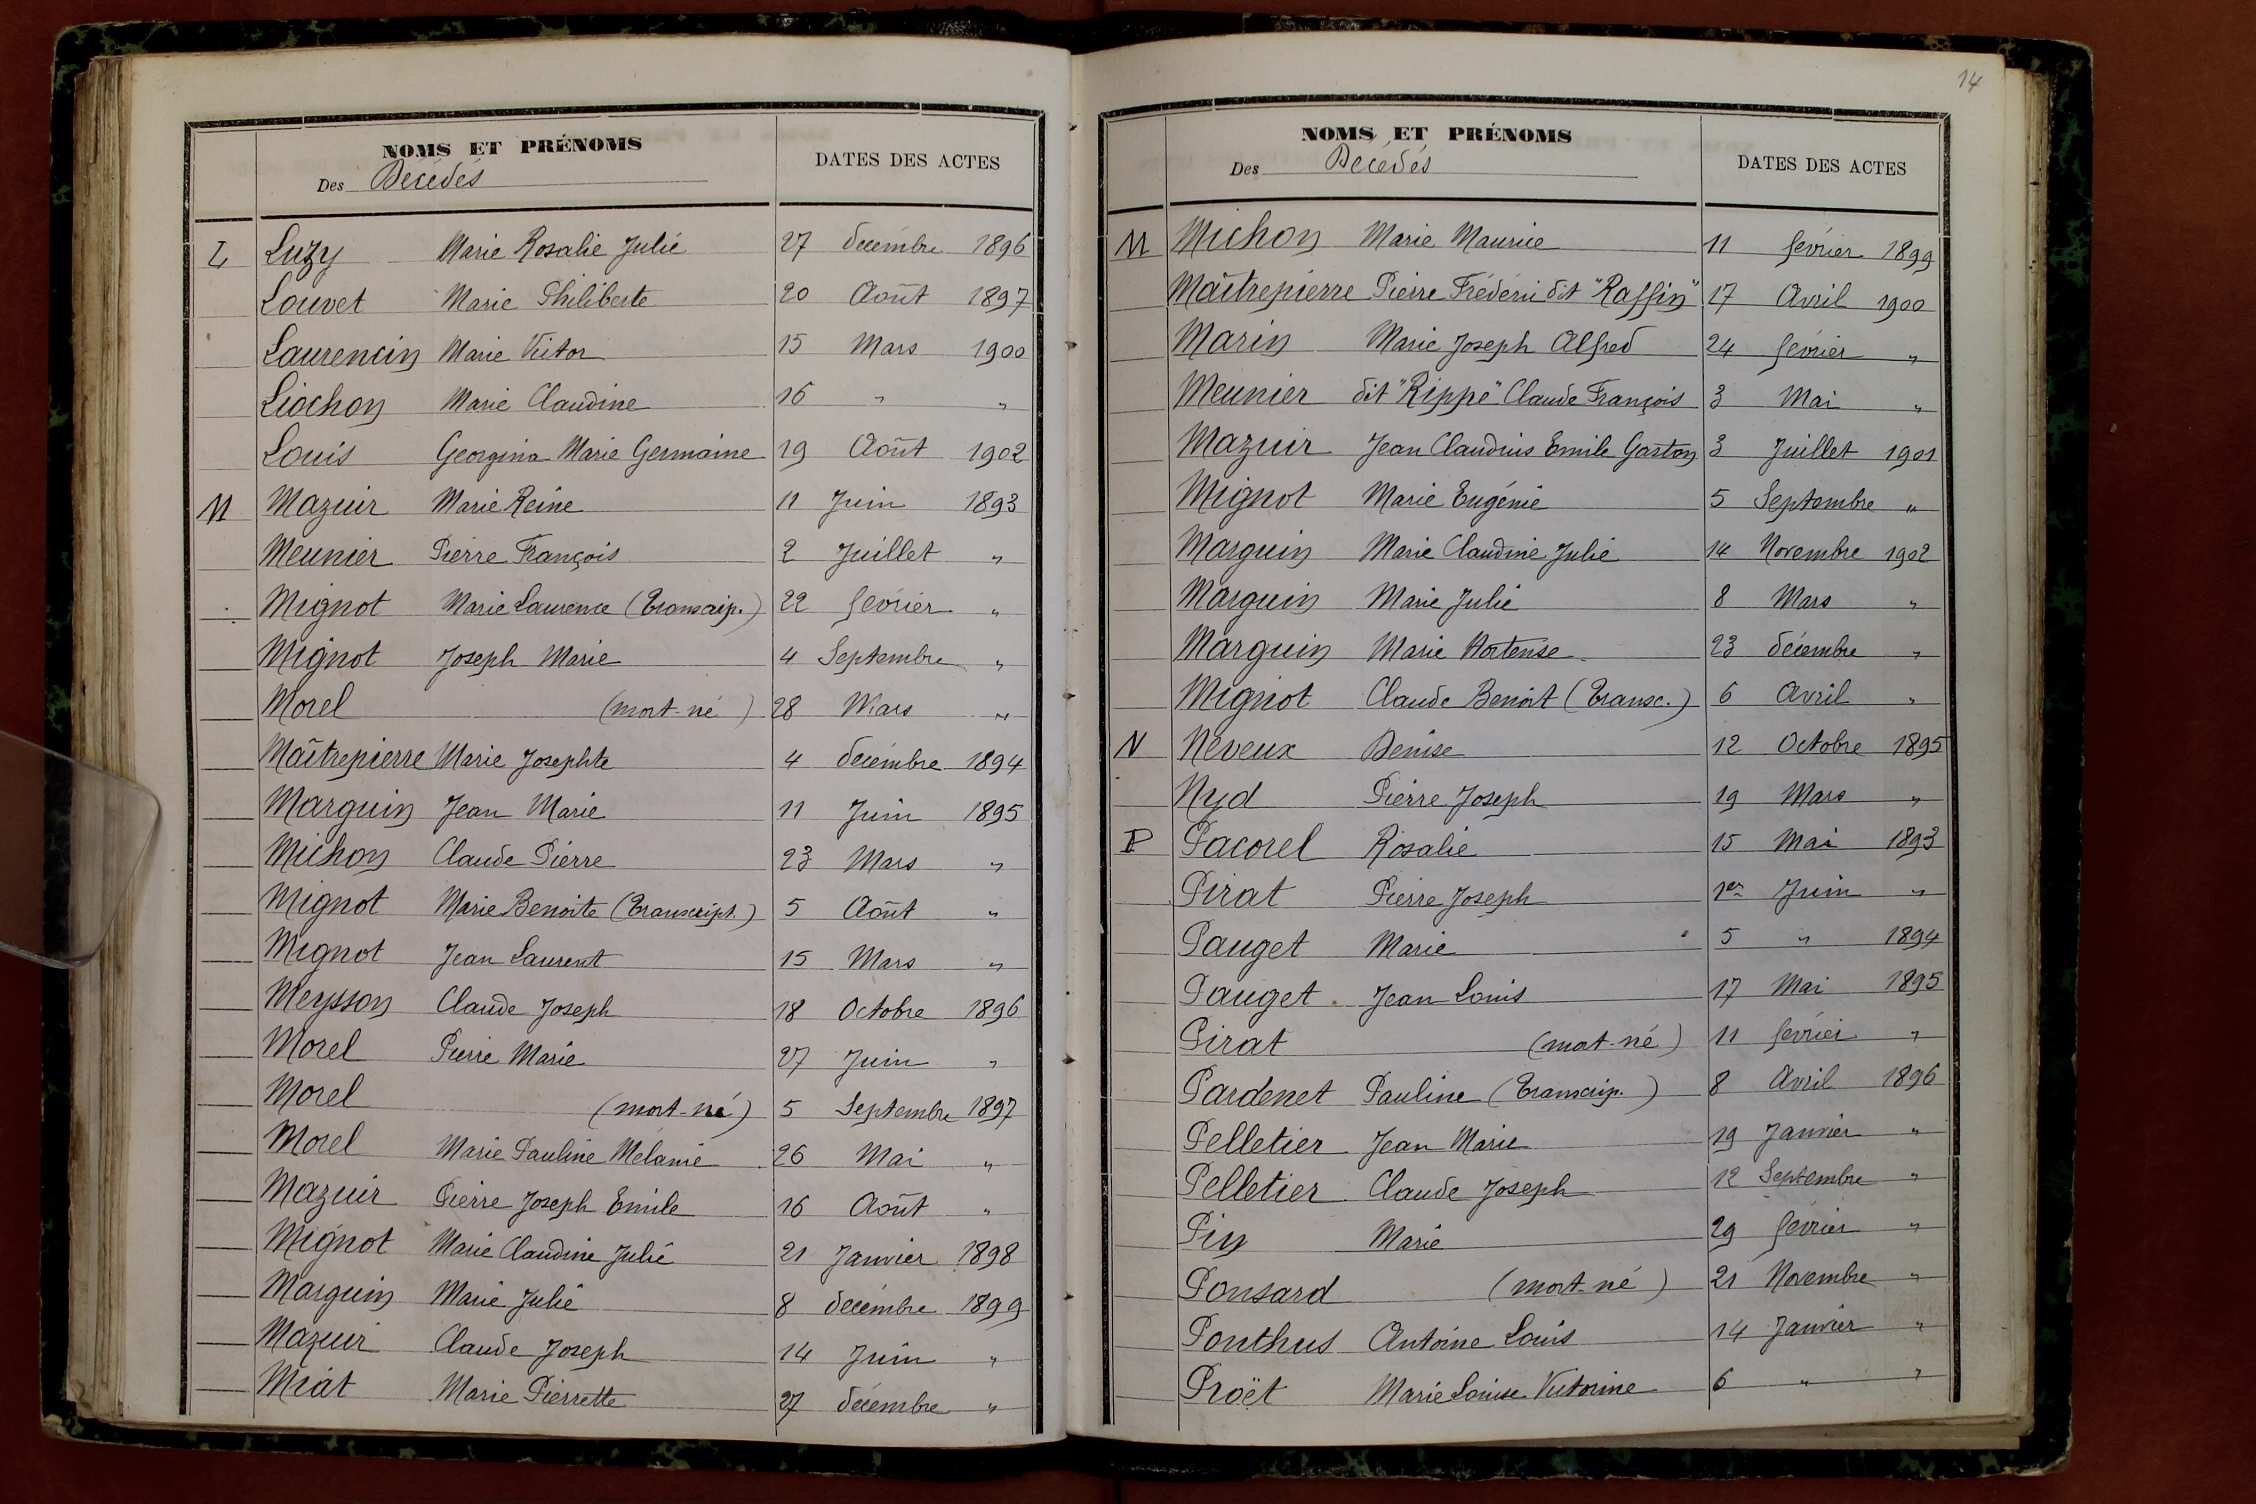 NOMS ET PRÉNOMS
Des Décédés
DATES DES ACTES
L Luzy Marie Rosalie Julie 27 décembre 1896
Louvet Marie Philiberte 20 Août 1897
Laurencin Marie Victor 15 Mars 1900
Liochon Marie Claudine 16 " "
Louis Georgina Marie Germaine 19 Août 1902
M Mazuir Marie Reine 11 Juin 1893
Meunier Pierre François 2 Juillet "
Mignot Marie Laurence (Transcrip.) 22 février "
Mignot Joseph Marie 4 Septembre "
Morel (mort-né) 28 Mars "
Maîtrepierre Marie Josephte 4 décembre 1894
Marguin Jean Marie 11 Juin 1895
Michon Claude Pierre 23 Mars "
Mignot Marie Benoite (Transcript.) 5 Août "
Mignot Jean Laurent 15 Mars "
Meysson Claude Joseph 18 Octobre 1896
Morel Pierre Marie 27 Juin "
Morel (mort-né) 5 Septembre 1897
Morel Marie Pauline Mélanie 26 Mai "
Mazuir Pierre Joseph Emile 16 Août "
Mignot Marie Claudine Julie 21 Janvier 1898
Marguin Marie Julie 8 décembre 1899
Mazuir Claude Joseph 14 Juin "
Miat Marie Pierrette 27 décembre "
14
NOMS ET PRÉNOMS
Des Décédés
DATES DES ACTES
M Michon Marie Maurice 11 février 1899
Maîtrepierre Pierre Frédéric dit "Raffin" 17 Avril 1900
Marin Marie Joseph Alfred 24 février "
Meunier dit "Rippe" Claude François 3 Mai "
Mazuir Jean Claudius Emile Gaston 3 Juillet 1901
Mignot Marie Eugénie 5 Septembre "
Marguin Marie Claudine Julie 14 Novembre 1902
Marguin Marie Julie 8 Mars "
Marguin Marie Hortense 23 décembre "
Mignot Claude Benoit (Transc.) 6 Avril "
N Neveux Denise 12 Octobre 1895
Nyd Pierre Joseph 19 Mars "
P Pacorel Rosalie 15 Mai 1893
Pirat Pierre Joseph 1er Juin "
Pauget Marie 5 " 1894
Pauget Jean Louis 17 Mai 1895
Pirat (mort-né) 11 février "
Pardenet Pauline (Transcrip.) 8 Avril 1896
Pelletier Jean Marie 19 Janvier "
Pelletier Claude Joseph 12 Septembre "
Pin Marie 29 février "
Ponsard (mort-né) 21 Novembre "
Ponthus Antoine Louis 14 Janvier "
Proët Marie Louise Victorine 6 " "